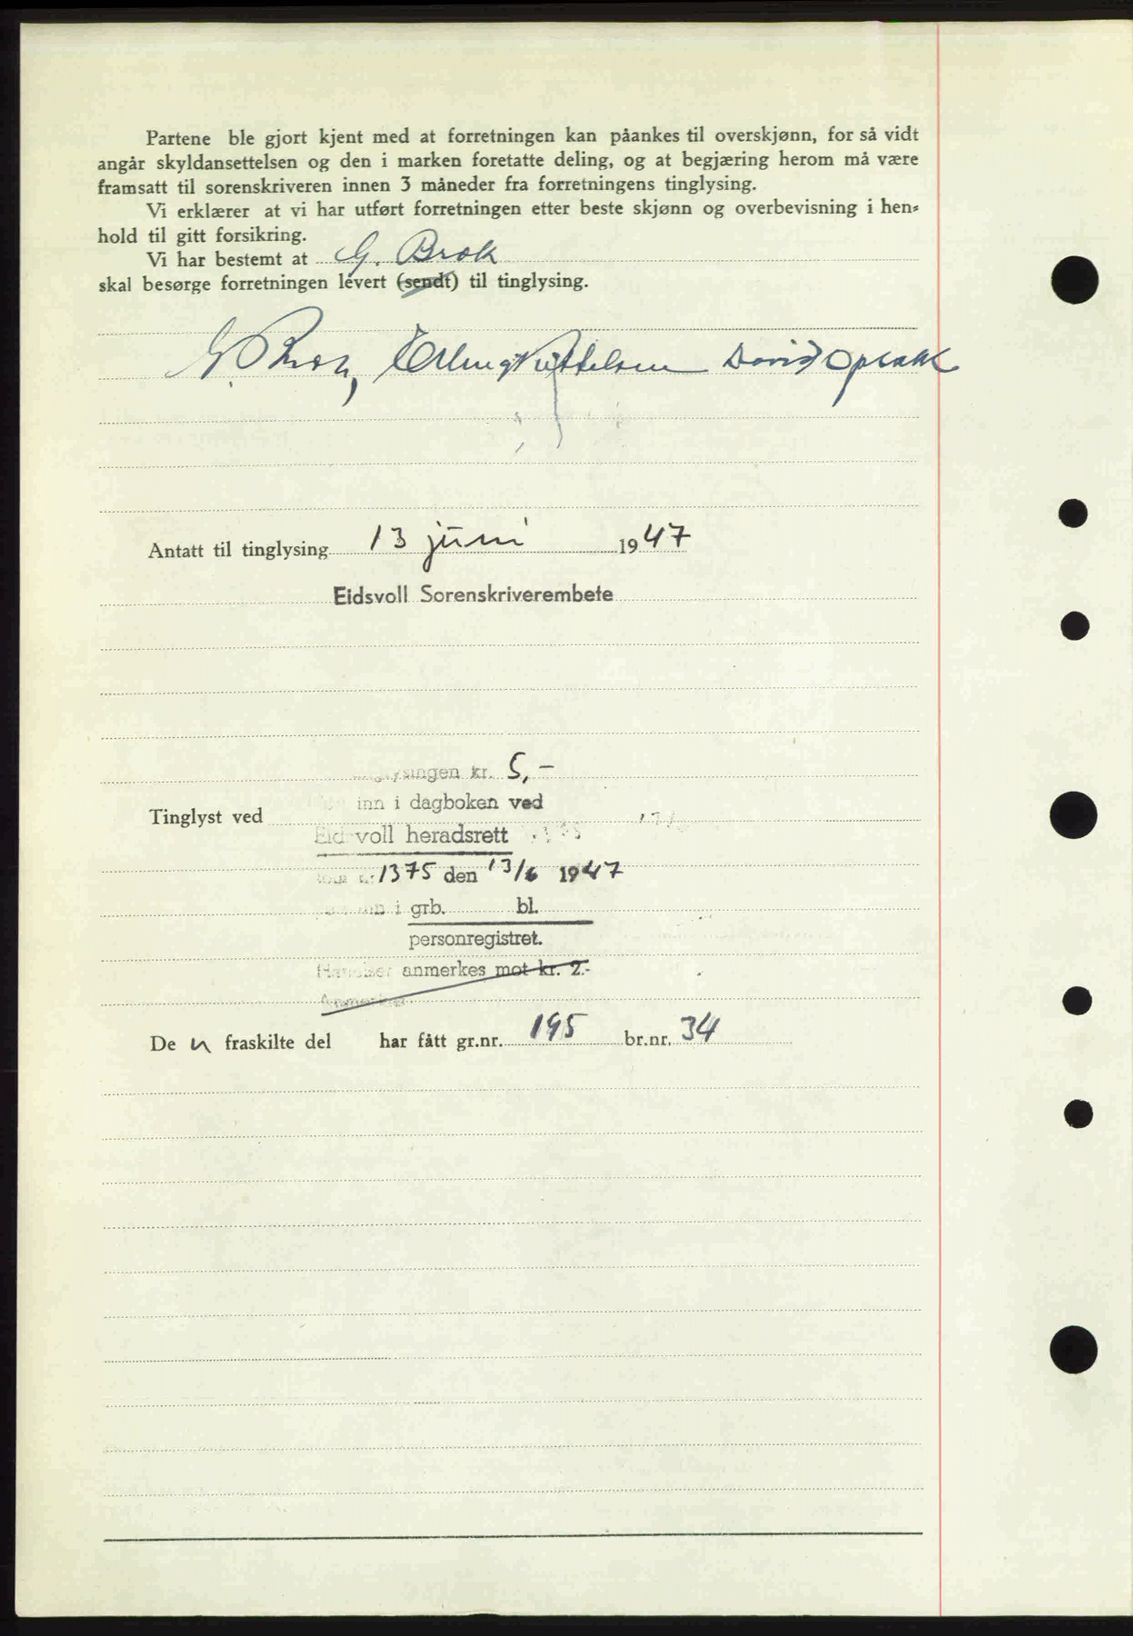 Partene ble gjort kjent med at forretningen kan påankes til overskjønn, for så vidt
angår skyldansettelsen og den i marken foretatte deling, og at begjæring herom må være
framsatt til sorenskriveren innen 3 måneder fra forretningens tinglysing.
Vi erklærer at vi har utført forretningen etter beste skjønn og overbevisning i hen-
hold til gitt forsikring.
Vi har bestemt at G. Brok
skal besørge forretningen levert (sendt) til tinglysing.
G. Brok, Erling Kittelsen David Opsakk
Antatt til tinglysing 13 juni 1947
Eidsvoll Sorenskriverembete
kr. 5,-
inn i dagboken ved
Tinglyst ved
Eidsvoll heradsrett
1375 den 13/6 1947
i grb. bl.
personregistret.
anmerkes mot kr. 2.-
De n fraskilte del har fått gr.nr. 195 br.nr. 34